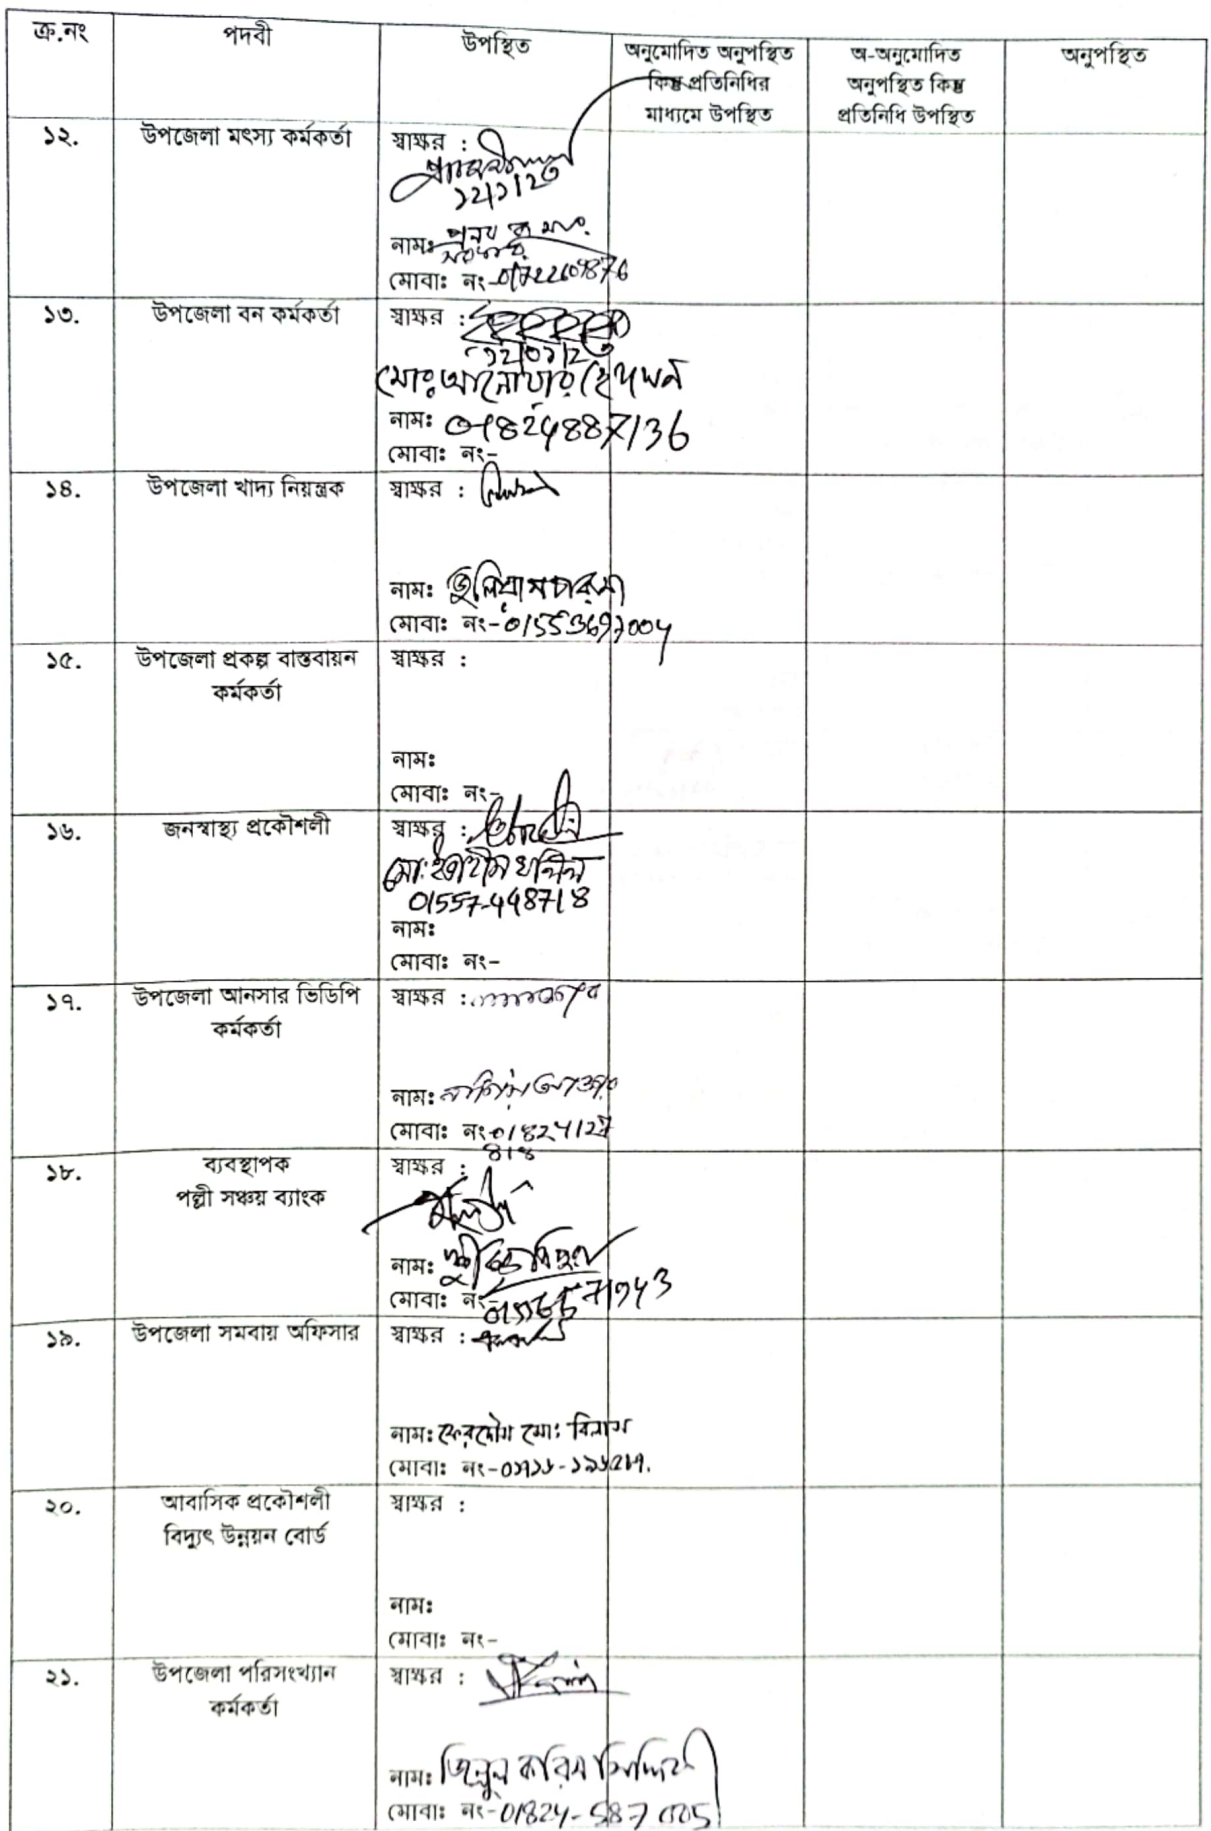 ক্র.নং পদবী উপস্থিত অনুমোদিত অনুপস্থিত কিন্তু প্রতিনিধির মাধ্যমে উপস্থিত অ-অনুমোদিত অনুপস্থিত কিন্তু প্রতিনিধি উপস্থিত অনুপস্থিত
১২. উপজেলা মৎস্য কর্মকর্তা স্বাক্ষর :
নামঃ
মোবাঃ নং-
১৩. উপজেলা বন কর্মকর্তা স্বাক্ষর :
১২/০১/২৩
মোঃ আনোয়ার হোসেন
নামঃ 01824887136
মোবাঃ নং-
১৪. উপজেলা খাদ্য নিয়ন্ত্রক স্বাক্ষর :
নামঃ জুলিয়াস চাকমা
মোবাঃ নং-01553697004
১৫. উপজেলা প্রকল্প বাস্তবায়ন
কর্মকর্তা
স্বাক্ষর :
নামঃ
মোবাঃ নং-
১৬. জনস্বাস্থ্য প্রকৌশলী স্বাক্ষর :
01557-448718
নামঃ
মোবাঃ নং-
১৭. উপজেলা আনসার ভিডিপি
কর্মকর্তা
স্বাক্ষর :
নামঃ
মোবাঃ নং-0182412
818
১৮. ব্যবস্থাপক
পল্লী সঞ্চয় ব্যাংক
স্বাক্ষর :
নামঃ
মোবাঃ নং-
১৯. উপজেলা সমবায় অফিসার স্বাক্ষর :
নামঃ ফেরদৌস মোঃ
মোবাঃ নং-
২০. আবাসিক প্রকৌশলী
বিদ্যুৎ উন্নয়ন বোর্ড
স্বাক্ষর :
নামঃ
মোবাঃ নং-
২১. উপজেলা পরিসংখ্যান
কর্মকর্তা
স্বাক্ষর :
নামঃ জিল্লুল করিম সিদ্দিকী
মোবাঃ নং-01824-587005